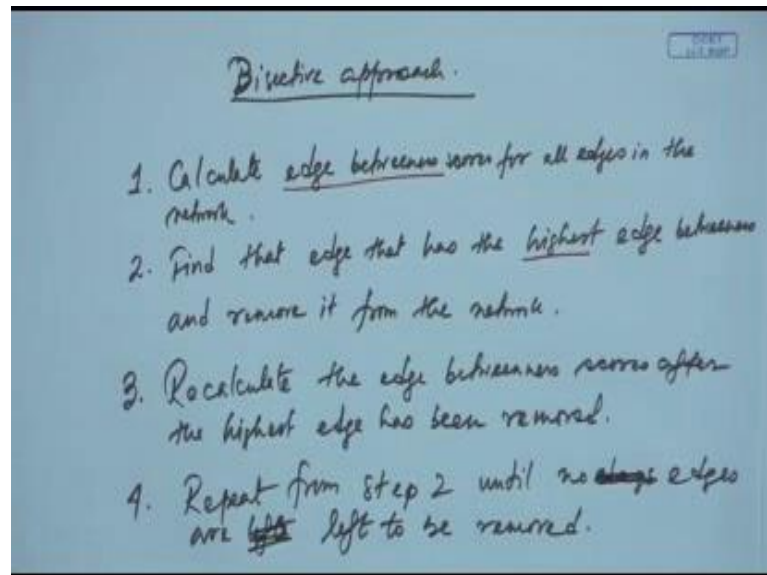 Bisective approach.
1. Calculate edge betweenness scores for all edges in the
network.
2. Find that edge that has the highest edge betweenness
and remove it from the network.
3. Recalculate the edge betweenness scores after
the highest edge has been removed.
4. Repeat from step 2 until no edges
are left to be removed.